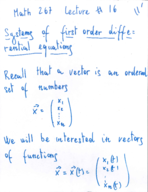 Math 267 Lecture # 16
Systems of first order diffe=
rential equations
Recall that a vector is an ordered
set of numbers
x⃗ = ( x₁ x₂ ⋮ xₙ )
We will be interested in vectors
of functions
x⃗ = x⃗(t) = ( x₁(t) x₂(t) ⋮ xₙ(t) )